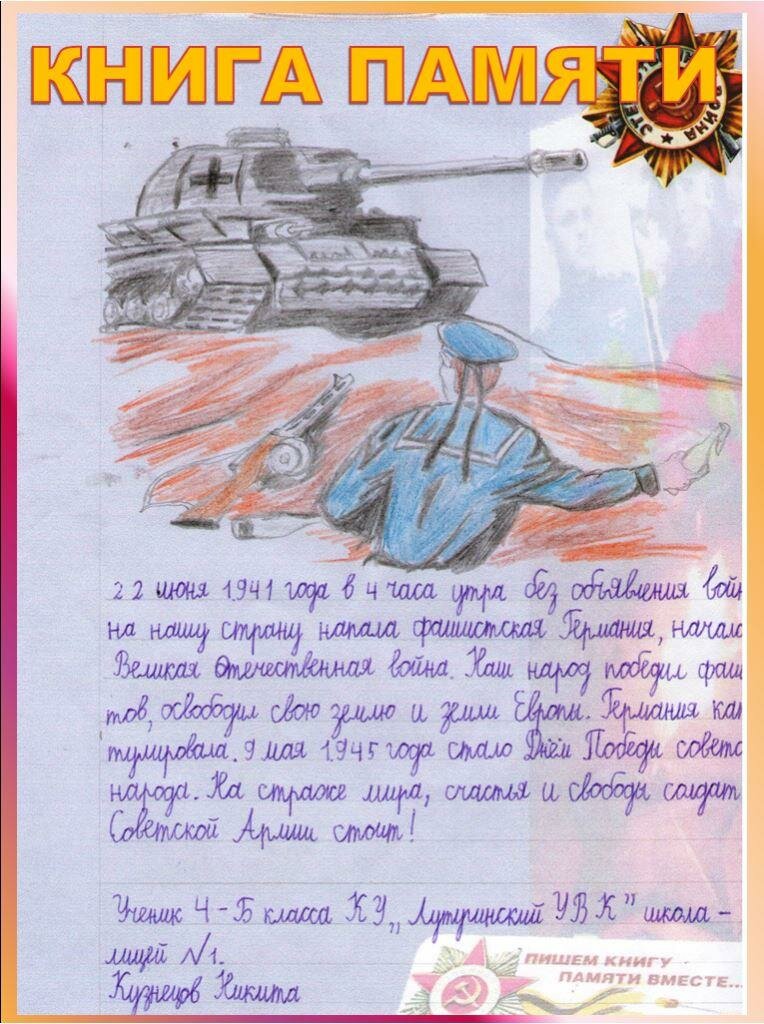 КНИГА ПАМЯТИ
ОТЕ ВОЙНА
22 июня 1941 года в 4 часа утра без объявления вой
на нашу страну напала фашистская Германия, начала
Великая Отечественная война. Наш народ победил фаши
тов, освободил свою землю и земли Европы. Германия кап
тулировала. 9 мая 1945 года стало Днём Победы советс
народа. На страже мира, счастья и свободы солдат
Советской Армии стоит!
Ученик 4-Б класса КУ „Лутугинский УВК" школа-
лицей №1.
Кузнецов Никита
ПИШЕМ КНИГУ
ПАМЯТИ ВМЕСТЕ...